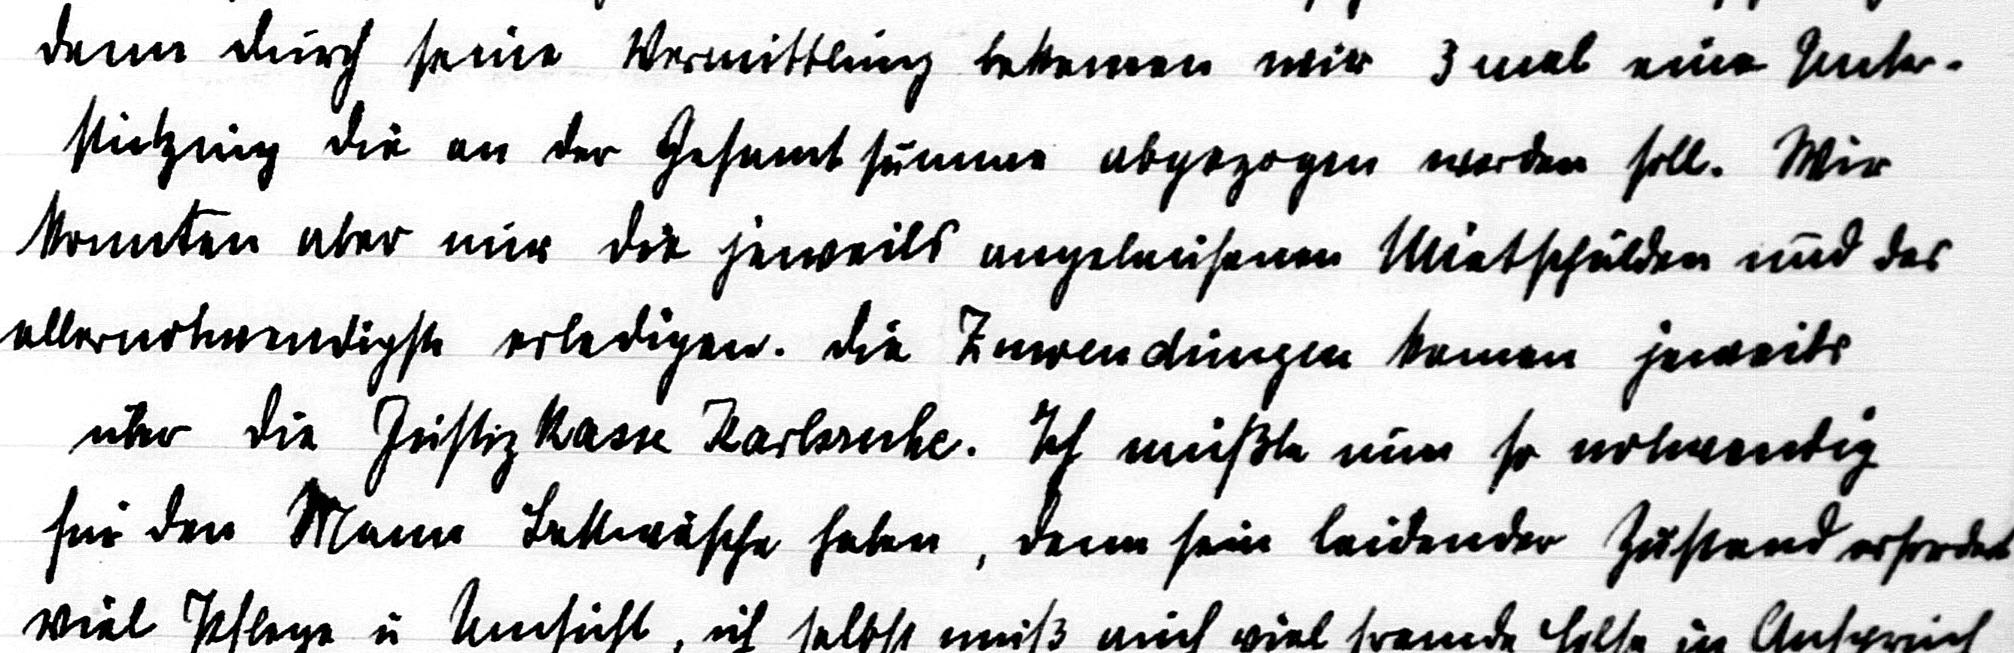 denn durch seine Vermittlung bekamen wir 3 mal eine Unter-
stützung die an der Gesamtsumme abgezogen werden soll. Wir
konnten aber nur die jeweils angelaufenen Mietschulden und das
allernotwendigste erledigen. Die Zuwendungen kamen jeweils
über die Justizkasse Karlsruhe. Ich müßte nun so notwendig
für den Mann Bettwäsche haben, denn sein leidender Zustand erfordert
viel Pflege u Umsicht, ich selbst muß auch viel fremde Hilfe in Anspruch